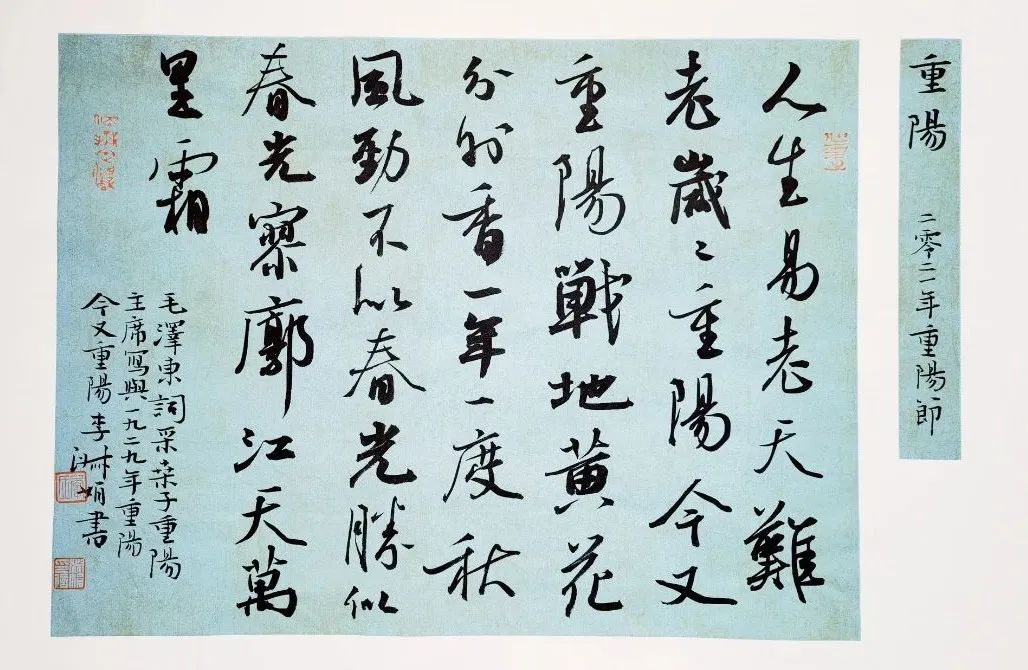 重陽
二零二一年重陽節
人生易老天難
老歲〻重陽今又
重陽戰地黄花
分外香一年一度秋
風勁不似春光勝似
春光寥廓江天萬
里霜
毛澤東詞采桑子重陽
主席寫與一九二九年重陽
今又重陽李淑娟書